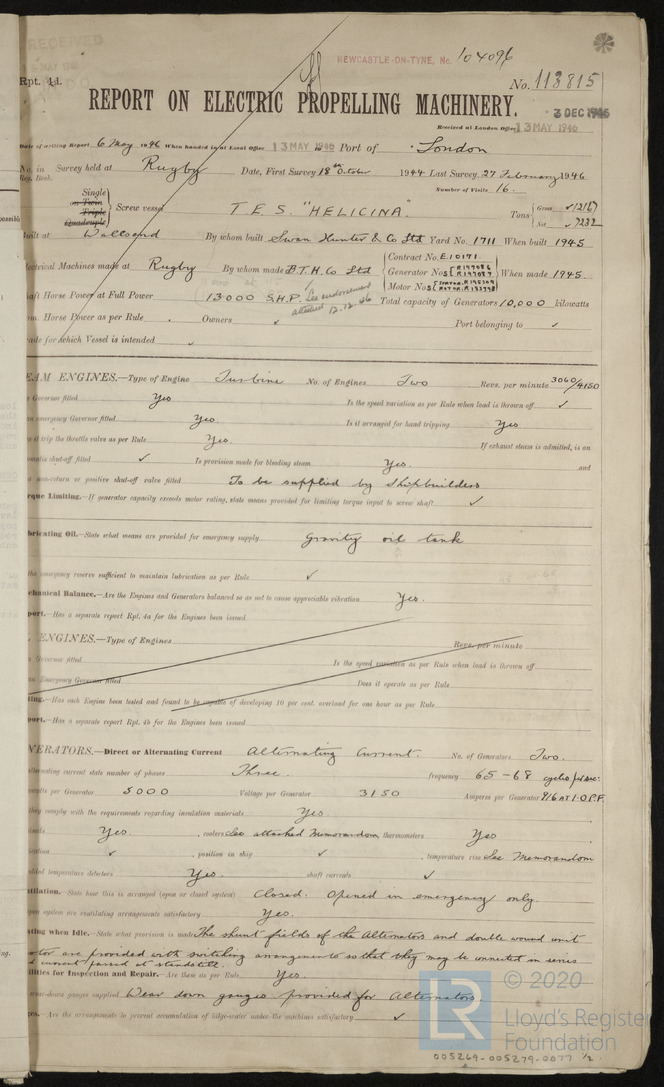 RECEIVED
NEWCASTLE-ON-TYNE, No. 104096
Rpt. 4d.
No. 113815
REPORT ON ELECTRIC PROPELLING MACHINERY.
3 DEC 1946
Received at London Office 13 MAY 1946
Date of writing Report 6 May 1946 When handed in at Local Office 13 MAY 1946 Port of London
No. in Reg. Book. Survey held at Rugby Date, First Survey 18th October 1944 Last Survey 27 February 1946
Number of Visits 16.
Single on Twin Triple Quadruple Screw vessel T.E.S. "HELICINA". Tons Gross 12167 Net 7232
Built at Wallsend By whom built Swan Hunter & Co Ltd Yard No. 1711 When built 1945
Electrical Machines made at Rugby By whom made B.T.H. Co Ltd Contract No. E.10171 Generator Nos Motor Nos When made 1945.
Shaft Horse Power at Full Power 13000 S.H.P. See endorsement attached 12.12.46 Total capacity of Generators 10,000 kilowatts
Nom. Horse Power as per Rule Owners Port belonging to
Trade for which Vessel is intended
EAM ENGINES.—Type of Engine Turbine No. of Engines Two Revs. per minute 3060/4150
Governor fitted Yes Is the speed variation as per Rule when load is thrown off ✓
emergency Governor fitted Yes. Is it arranged for hand tripping Yes
it trip the throttle valve as per Rule Yes. If exhaust steam is admitted, is an
matic shut-off fitted ✓ Is provision made for bleeding steam Yes. and
a non-return or positive shut-off valve fitted To be supplied by Shipbuilders
rque Limiting.—If generator capacity exceeds motor rating, state means provided for limiting torque input to screw shaft. ✓
bricating Oil.—State what means are provided for emergency supply gravity oil tank
the emergency reserve sufficient to maintain lubrication as per Rule ✓
chanical Balance.—Are the Engines and Generators balanced so as not to cause appreciable vibration Yes.
port.—Has a separate report Rpt. 4a for the Engines been issued
ENGINES.—Type of Engines Revs. per minute
Governor fitted Is the speed variation as per Rule when load is thrown off
an Emergency Governor fitted Does it operate as per Rule
ting.—Has each Engine been tested and found to be capable of developing 10 per cent. overload for one hour as per Rule
port.—Has a separate report Rpt. 4b for the Engines been issued
NERATORS.—Direct or Alternating Current Alternating Current. No. of Generators Two.
alternating current state number of phases Three. frequency 65-68 cycles per sec.
watts per Generator 5000 Voltage per Generator 3150 Amperes per Generator 916 AT 1.0 P.F.
they comply with the requirements regarding insulation materials Yes.
Yes. , coolers See attached Memorandum, thermometers Yes
✓ , position in ship ✓ , temperature rise See Memorandum
dded temperature detectors Yes. shaft currents ✓
ntilation.—State how this is arranged (open or closed system) Closed. Opened in emergency only.
pen system are ventilating arrangements satisfactory Yes.
ating when Idle.—State what provision is made The shunt fields of the Alternators and double wound unit
otor are provided with switching arrangements so that they may be connected in series
current passed at standstill.
ilities for Inspection and Repair.—Are these as per Rule Yes.
wear-down gauges supplied Wear down gauges provided for Alternators.
Are the arrangements to prevent accumulation of bilge-water under the machines satisfactory ✓
© 2020
LR Lloyd's Register
Foundation
005269-005279-0077 1/2